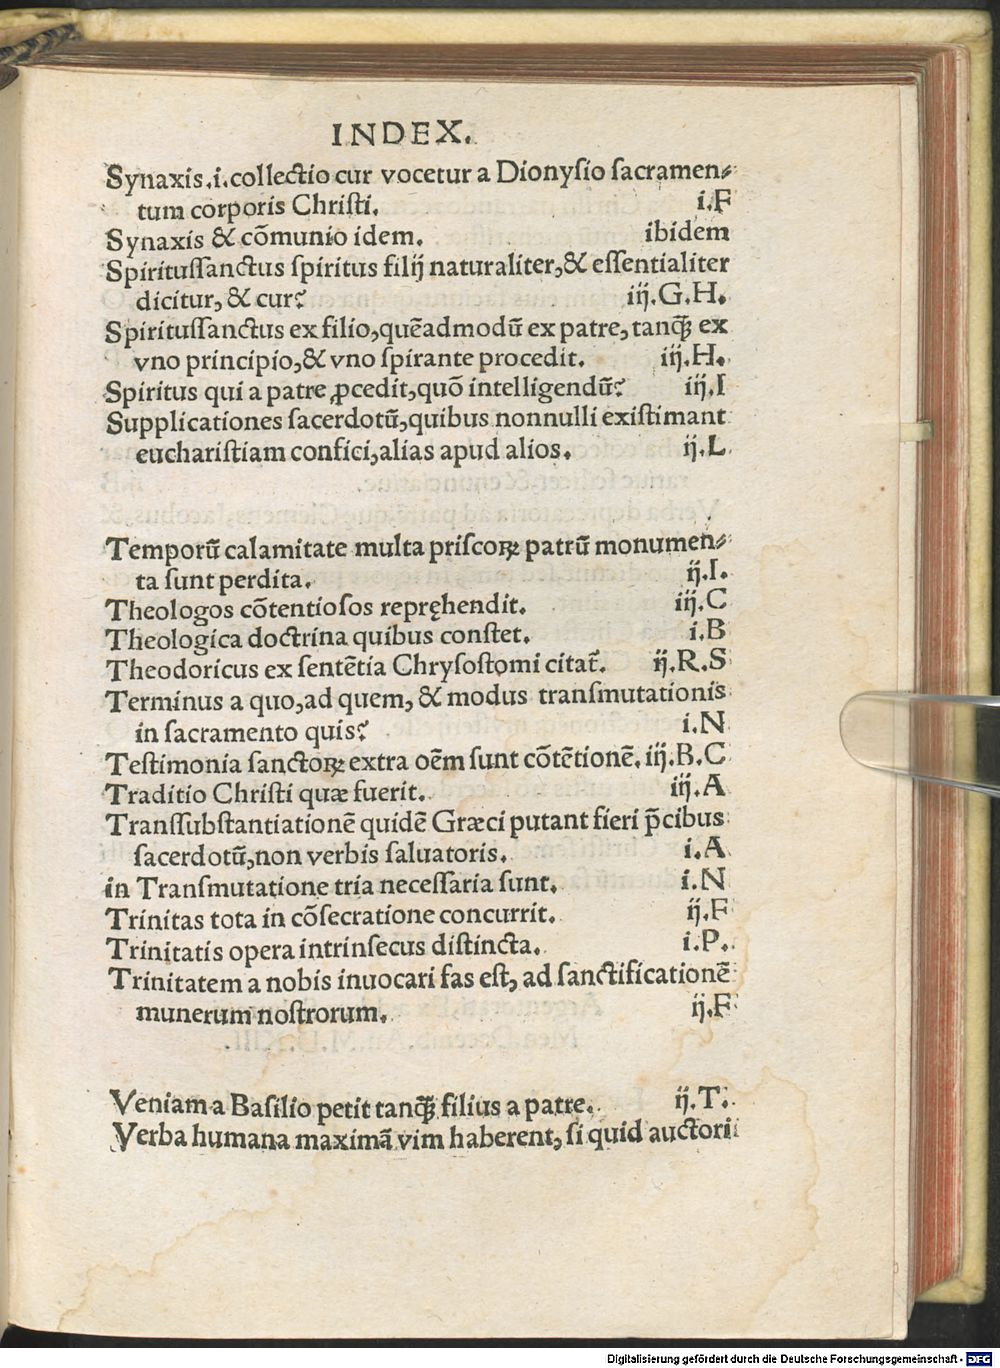 INDEX.
Synaxis.i.collectio cur vocetur a Dionysio sacramen⸗
tum corporis Christi. i.F
Synaxis & cōmunio idem. ibidem
Spiritussanctus spiritus filij naturaliter,& essentialiter
dicitur, & cur? iij.G.H.
Spiritussanctus ex filio,quēadmodū ex patre, tanqȝ ex
vno principio,& vno spirante procedit. iij.H.
Spiritus qui a patre ꝓcedit,quō intelligendū? iij.I
Supplicationes sacerdotū,quibus nonnulli existimant
eucharistiam confici,alias apud alios. ij.L
Temporū calamitate multa priscoꝝ patrū monumen⸗
ta sunt perdita. ij.I.
Theologos cōtentiosos repręhendit. iij.C
Theologica doctrina quibus constet. i.B
Theodoricus ex sentētia Chrysostomi citat᷑. ij.R.S
Terminus a quo,ad quem, & modus transmutationis
in sacramento quis? i.N
Testimonia sanctoꝝ extra oēm sunt cōtētionē. iij.B.C
Traditio Christi quæ fuerit. iij.A
Transsubstantiationē quidē Græci putant fieri p̄cibus
sacerdotū,non verbis saluatoris. i.A
in Transmutatione tria necessaria sunt. i.N
Trinitas tota in cōsecratione concurrit. ij.F
Trinitatis opera intrinsecus distincta. i.P.
Trinitatem a nobis inuocari fas est, ad sanctificationē
munerum nostrorum. ij.F
Veniam a Basilio petit tanqȝ filius a patre. ij.T.
Verba humana maximā vim haberent, si quid auctori
Digitalisierung gefördert durch die Deutsche Forschungsgemeinschaft - DFG